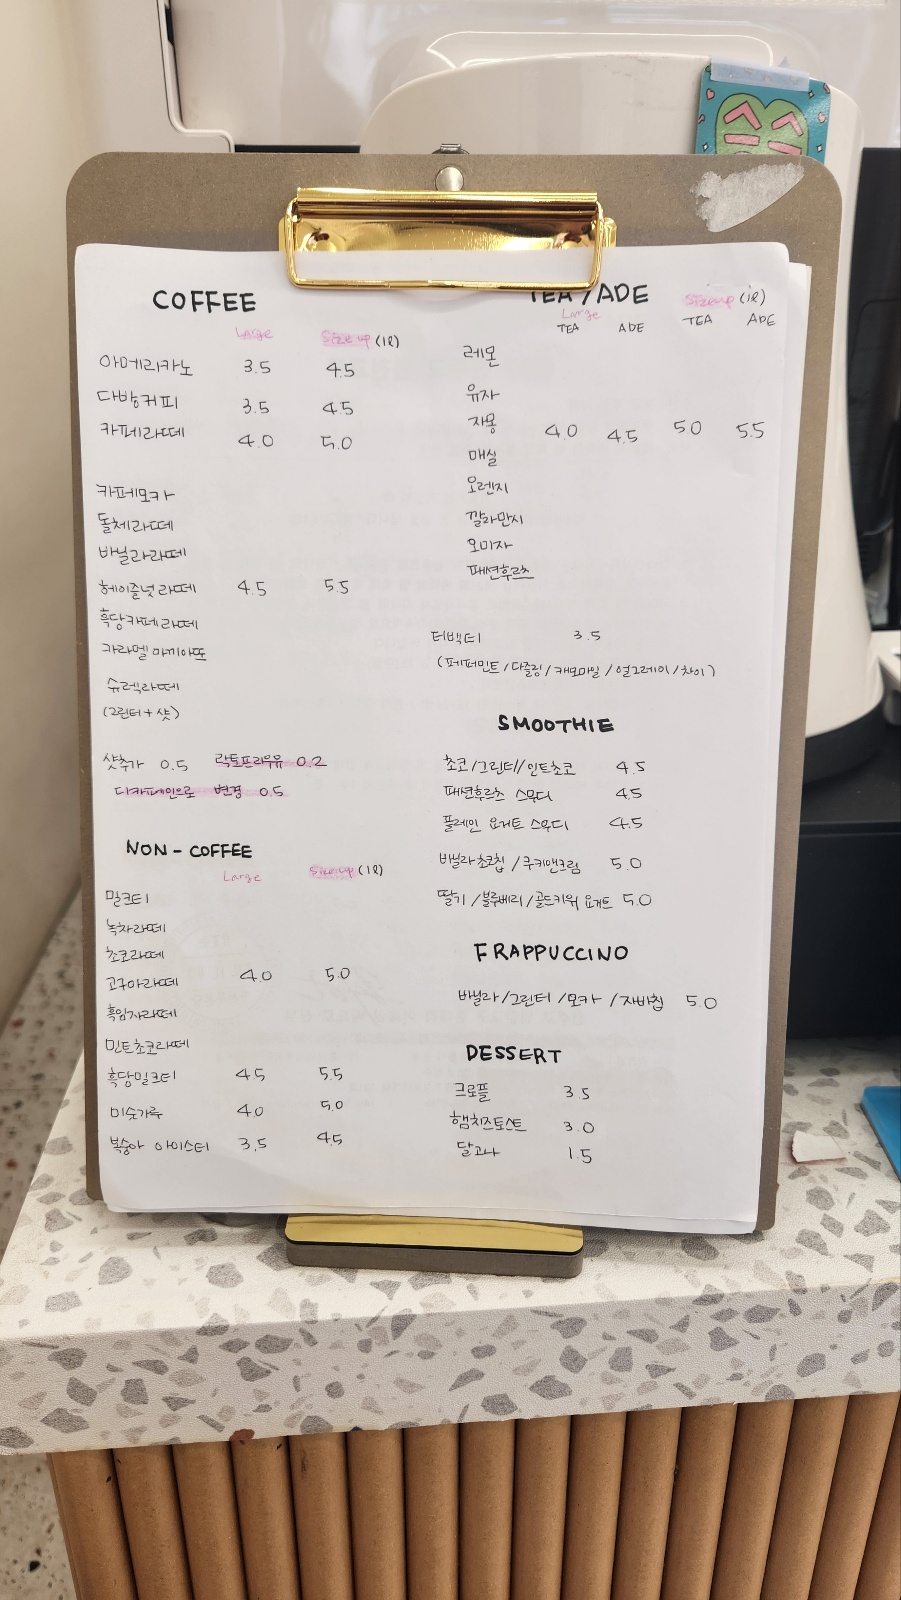 COFFEE
Large Size up (1ℓ)
아메리카노 3.5 4.5
다방커피 3.5 4.5
카페라떼 4.0 5.0
카페모카
돌체라떼
바닐라라떼
헤이즐넛라떼 4.5 5.5
흑당카페라떼
카라멜마끼아또
슈렉라떼
(그린티+샷)
샷추가 0.5 락토프리우유 0.2
디카페인으로 변경 0.5
NON-COFFEE
Large Size up (1ℓ)
밀크티
녹차라떼
초코라떼
고구마라떼 4.0 5.0
흑임자라떼
민트초코라떼
흑당밀크티 4.5 5.5
미숫가루 4.0 5.0
복숭아 아이스티 3.5 4.5
TEA/ADE
Large Size up (1ℓ)
TEA ADE TEA ADE
레몬
유자
자몽 4.0 4.5 5.0 5.5
매실
오렌지
깔라만시
오미자
패션후르츠
티백티 3.5
(페퍼민트/다즐링/캐모마일/얼그레이/차이)
SMOOTHIE
초코/그린티/민트초코 4.5
패션후르츠 스무디 4.5
플레인 요거트 스무디 4.5
바닐라초코칩/쿠키앤크림 5.0
딸기/블루베리/골드키위 요거트 5.0
FRAPPUCCINO
바닐라/그린티/모카/자바칩 5.0
DESSERT
크로플 3.5
햄치즈토스트 3.0
달고나 1.5